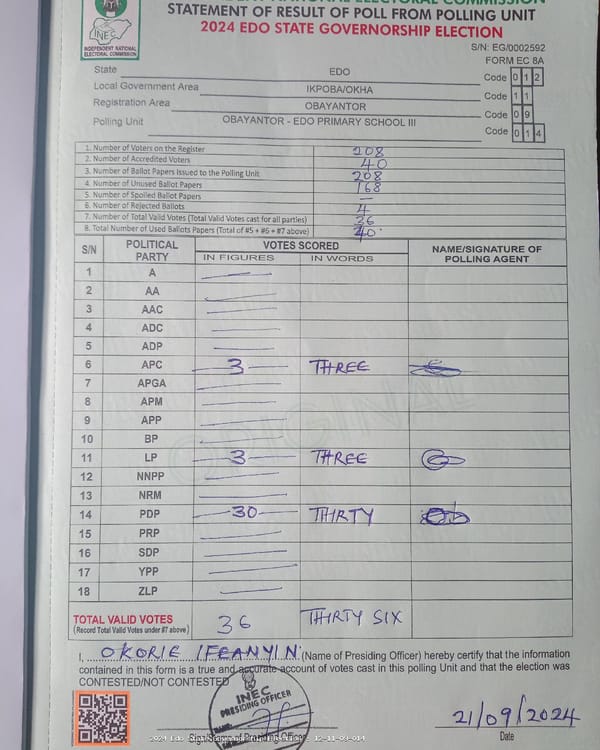 INEC
INDEPENDENT NATIONAL
ELECTORAL COMMISSION
STATEMENT OF RESULT OF POLL FROM POLLING UNIT
2024 EDO STATE GOVERNORSHIP ELECTION
S/N: EG/0002592
FORM EC 8A
State EDO Code 0 1 2
Local Government Area IKPOBA/OKHA Code 1 1
Registration Area OBAYANTOR Code 0 9
Polling Unit OBAYANTOR - EDO PRIMARY SCHOOL III Code 0 1 4
1. Number of Voters on the Register 208
2. Number of Accredited Voters 40
3. Number of Ballot Papers Issued to the Polling Unit 208
4. Number of Unused Ballot Papers 168
5. Number of Spoiled Ballot Papers —
6. Number of Rejected Ballots 4
7. Number of Total Valid Votes (Total Valid Votes cast for all parties) 36
8. Total Number of Used Ballots Papers (Total of #5 + #6 + #7 above) 40
S/N POLITICAL PARTY VOTES SCORED NAME/SIGNATURE OF POLLING AGENT
IN FIGURES IN WORDS
1 A
2 AA
3 AAC
4 ADC
5 ADP
6 APC 3 THREE
7 APGA
8 APM
9 APP
10 BP
11 LP 3 THREE
12 NNPP
13 NRM
14 PDP 30 THIRTY
15 PRP
16 SDP
17 YPP
18 ZLP
TOTAL VALID VOTES 36 THIRTY SIX
(Record Total Valid Votes under #7 above)
ORIGINAL
I, OKORIE IFEANYIN (Name of Presiding Officer) hereby certify that the information
contained in this form is a true and accurate account of votes cast in this polling Unit and that the election was
CONTESTED/NOT CONTESTED
INEC
PRESIDING OFFICER
21/09/2024
Date